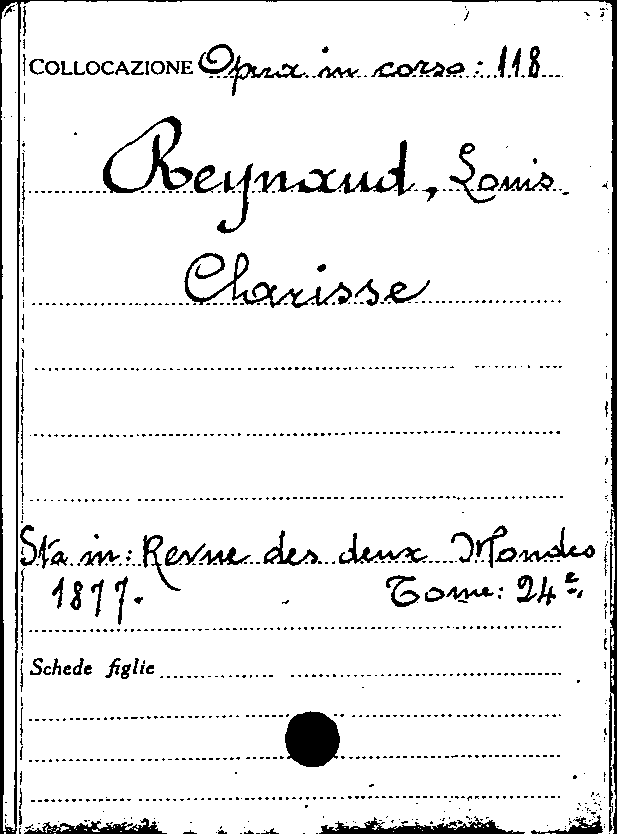 COLLOCAZIONE Opera in corso: 118
Reynaud, Louis.
Charisse
Sta in: Revue des deux Mondes
1877. Tome: 24e.
Schede figlie